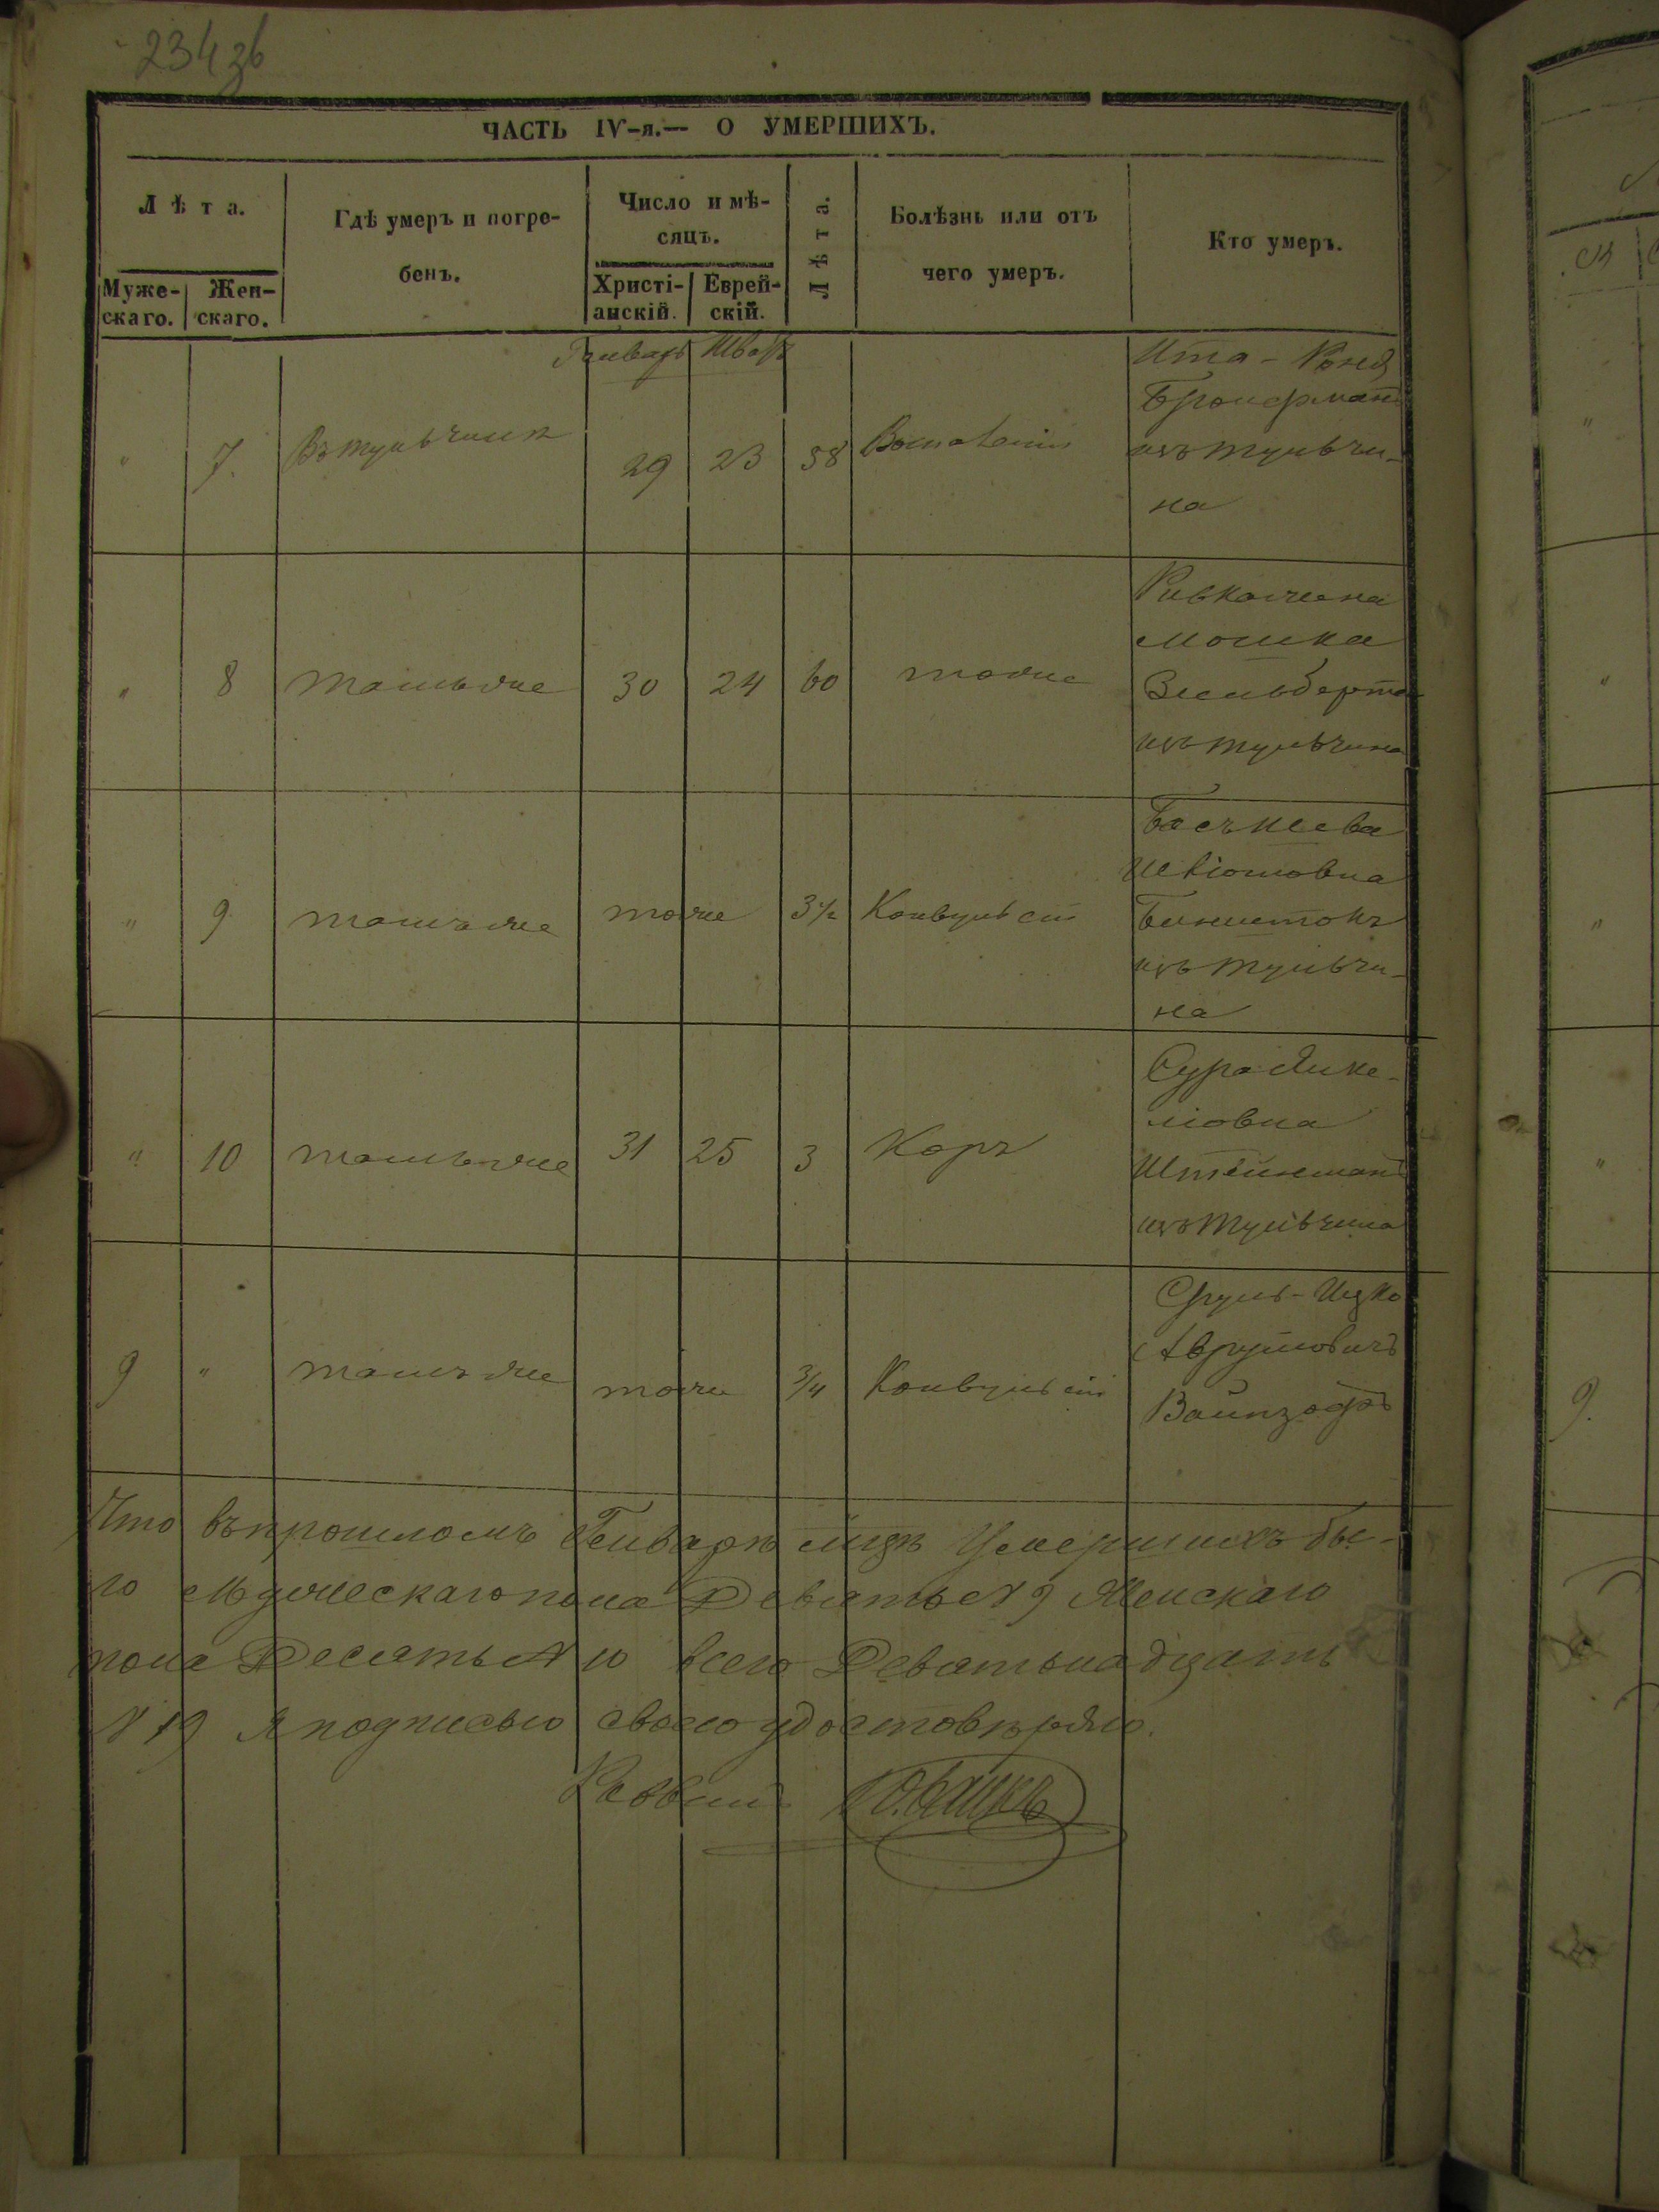 234 зв
ЧАСТЬ IV-я.— О УМЕРШИХЪ.
Лѣта.
Муже-
скаго.
Жен-
скаго.
Гдѣ умеръ и погре-
бенъ.
Число и мѣ-
сяцъ.
Христі-
анскій.
Еврей-
скій.
Лѣта.
Болѣзнь или отъ
чего умеръ.
Кто умеръ.
Генварь Шватъ
" 7. Въ Тульчинѣ 29 23 58
Ита - Рохля
из Тульчи-
на
" 8 Тамъ же 30 24 60 тоже
Ривка жена
Мошка
Зильберта
изъ Тульчина
" 9 тамъ же тоже 3 1/2 Конвульсіи
Бася Шева
изъ Тульчи-
на
" 10 тамъ же 31 25 3 Корь
Сура
Штейнман
изъ Тульчина
9 " тамъ же тоже 3/4 Конвульсіи
Сруль - Ицко
Аврумовичъ
Вайнзофъ
Что въ прошломъ Генварѣ мцѣ Умершихъ бы-
ло Мужескаго пола Девять № 9 Женскаго
пола Десять № 10 всего Девятьнадцать
№ 19 Я подписью своею удостовѣряю.
Раввинъ
9.